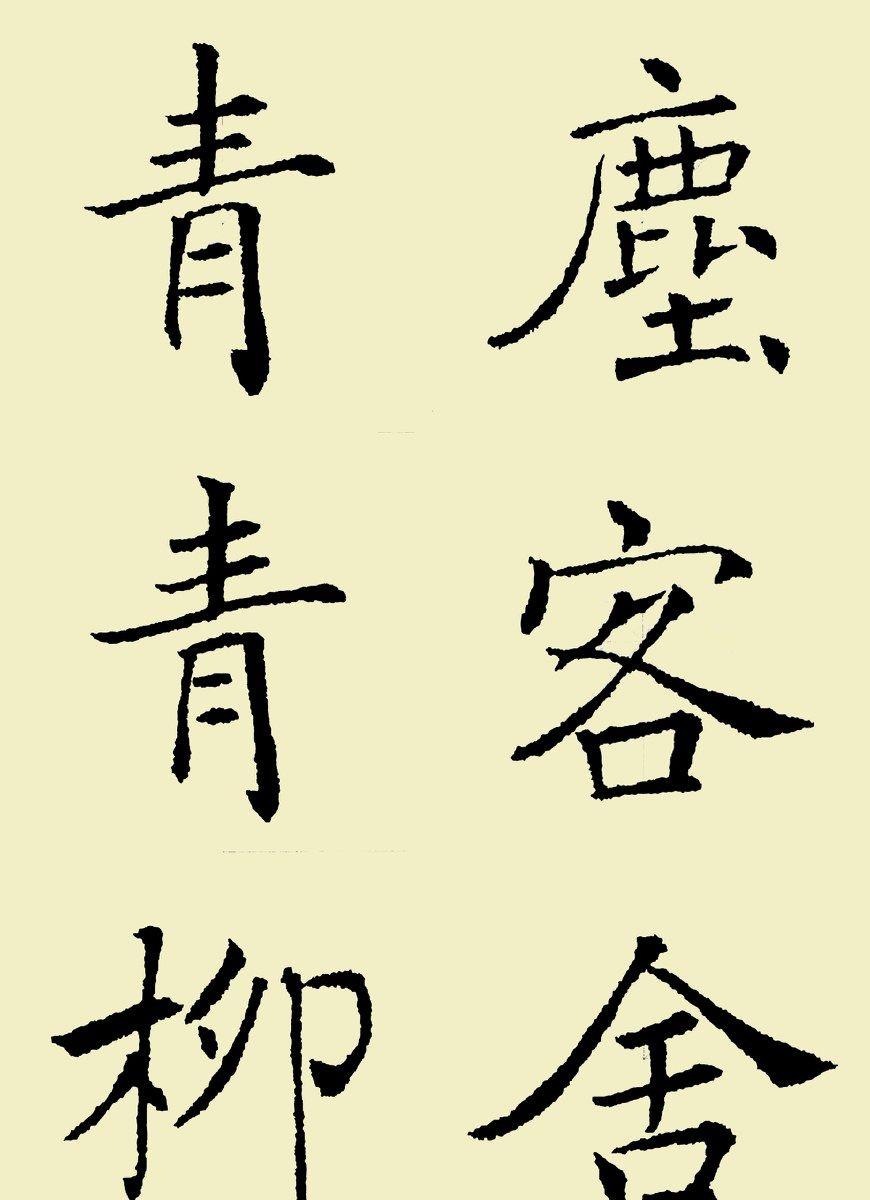 塵客舍
青青柳